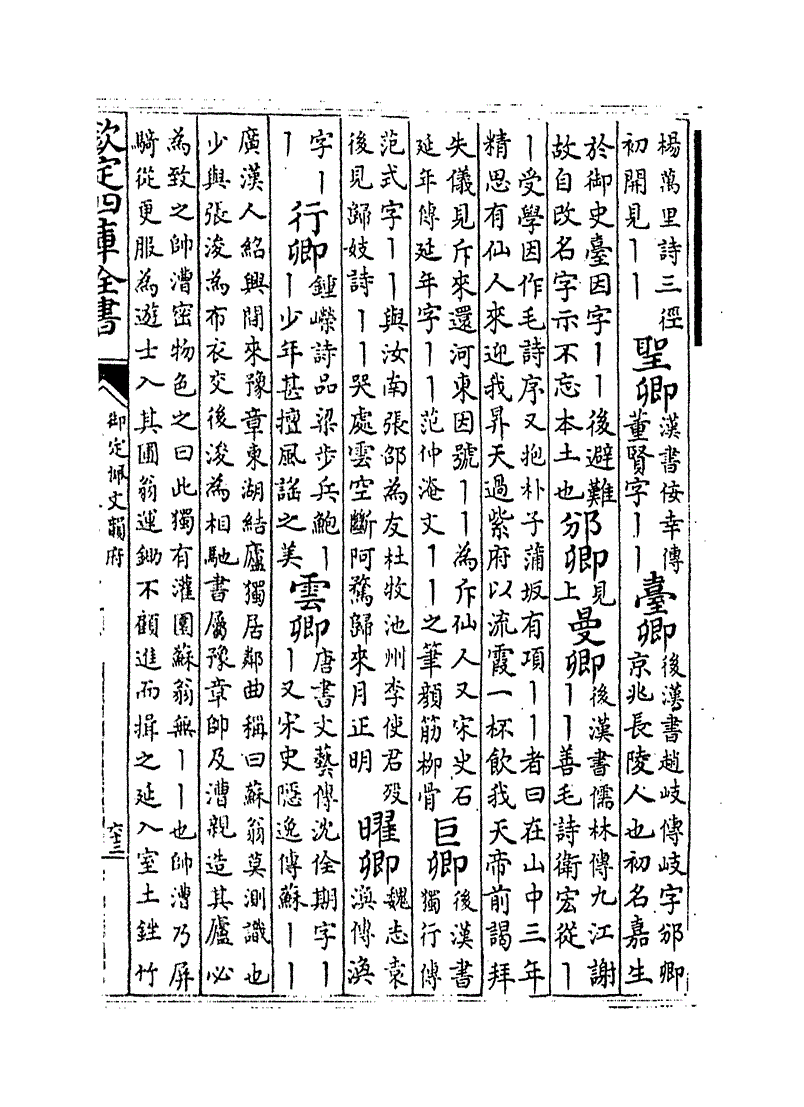 楊萬里詩三徑
初開見丨丨
聖卿
漢書佞幸傳
董賢字丨丨
臺卿
後漢書趙岐傳岐字邠卿
京兆長陵人也初名嘉生
於御史臺因字丨丨後避難
故自改名字示不忘本土也
邠卿
見
上
曼卿
後漢書儒林傳九江謝
丨丨善毛詩衛宏從丨
丨受學因作毛詩序又抱朴子蒲坂有項丨丨者曰在山中三年
精思有仙人來迎我昇天過紫府以流霞一杯飲我天帝前謁拜
失儀見斥來還河東因號丨丨為斥仙人又宋史石
延年傳延年字丨丨范仲淹文丨丨之筆顔筋柳骨
巨卿
後漢書
獨行傳
范式字丨丨與汝南張邵為友杜牧池州李使君殁
後見歸妓詩丨丨哭處雲空斷阿鶩歸來月正明
曜卿
魏志袁
渙傳渙
字丨
丨
行卿
鍾嶸詩品梁步兵鮑丨
丨少年甚擅風謡之美
雲卿
唐書文藝傳沈佺期字丨
丨又宋史隱逸傳蘇丨丨
廣漢人紹興間來豫章東湖結廬獨居鄰曲稱曰蘇翁莫測識也
少與張浚為布衣交後浚為相馳書屬豫章帥及漕親造其廬必
為致之帥漕密物色之曰此獨有灌園蘇翁無丨丨也帥漕乃屏
騎從更服為遊士入其圃翁運鋤不顧進而揖之延入室土銼竹
欽定四庫全書
御定佩文韻府
六十二